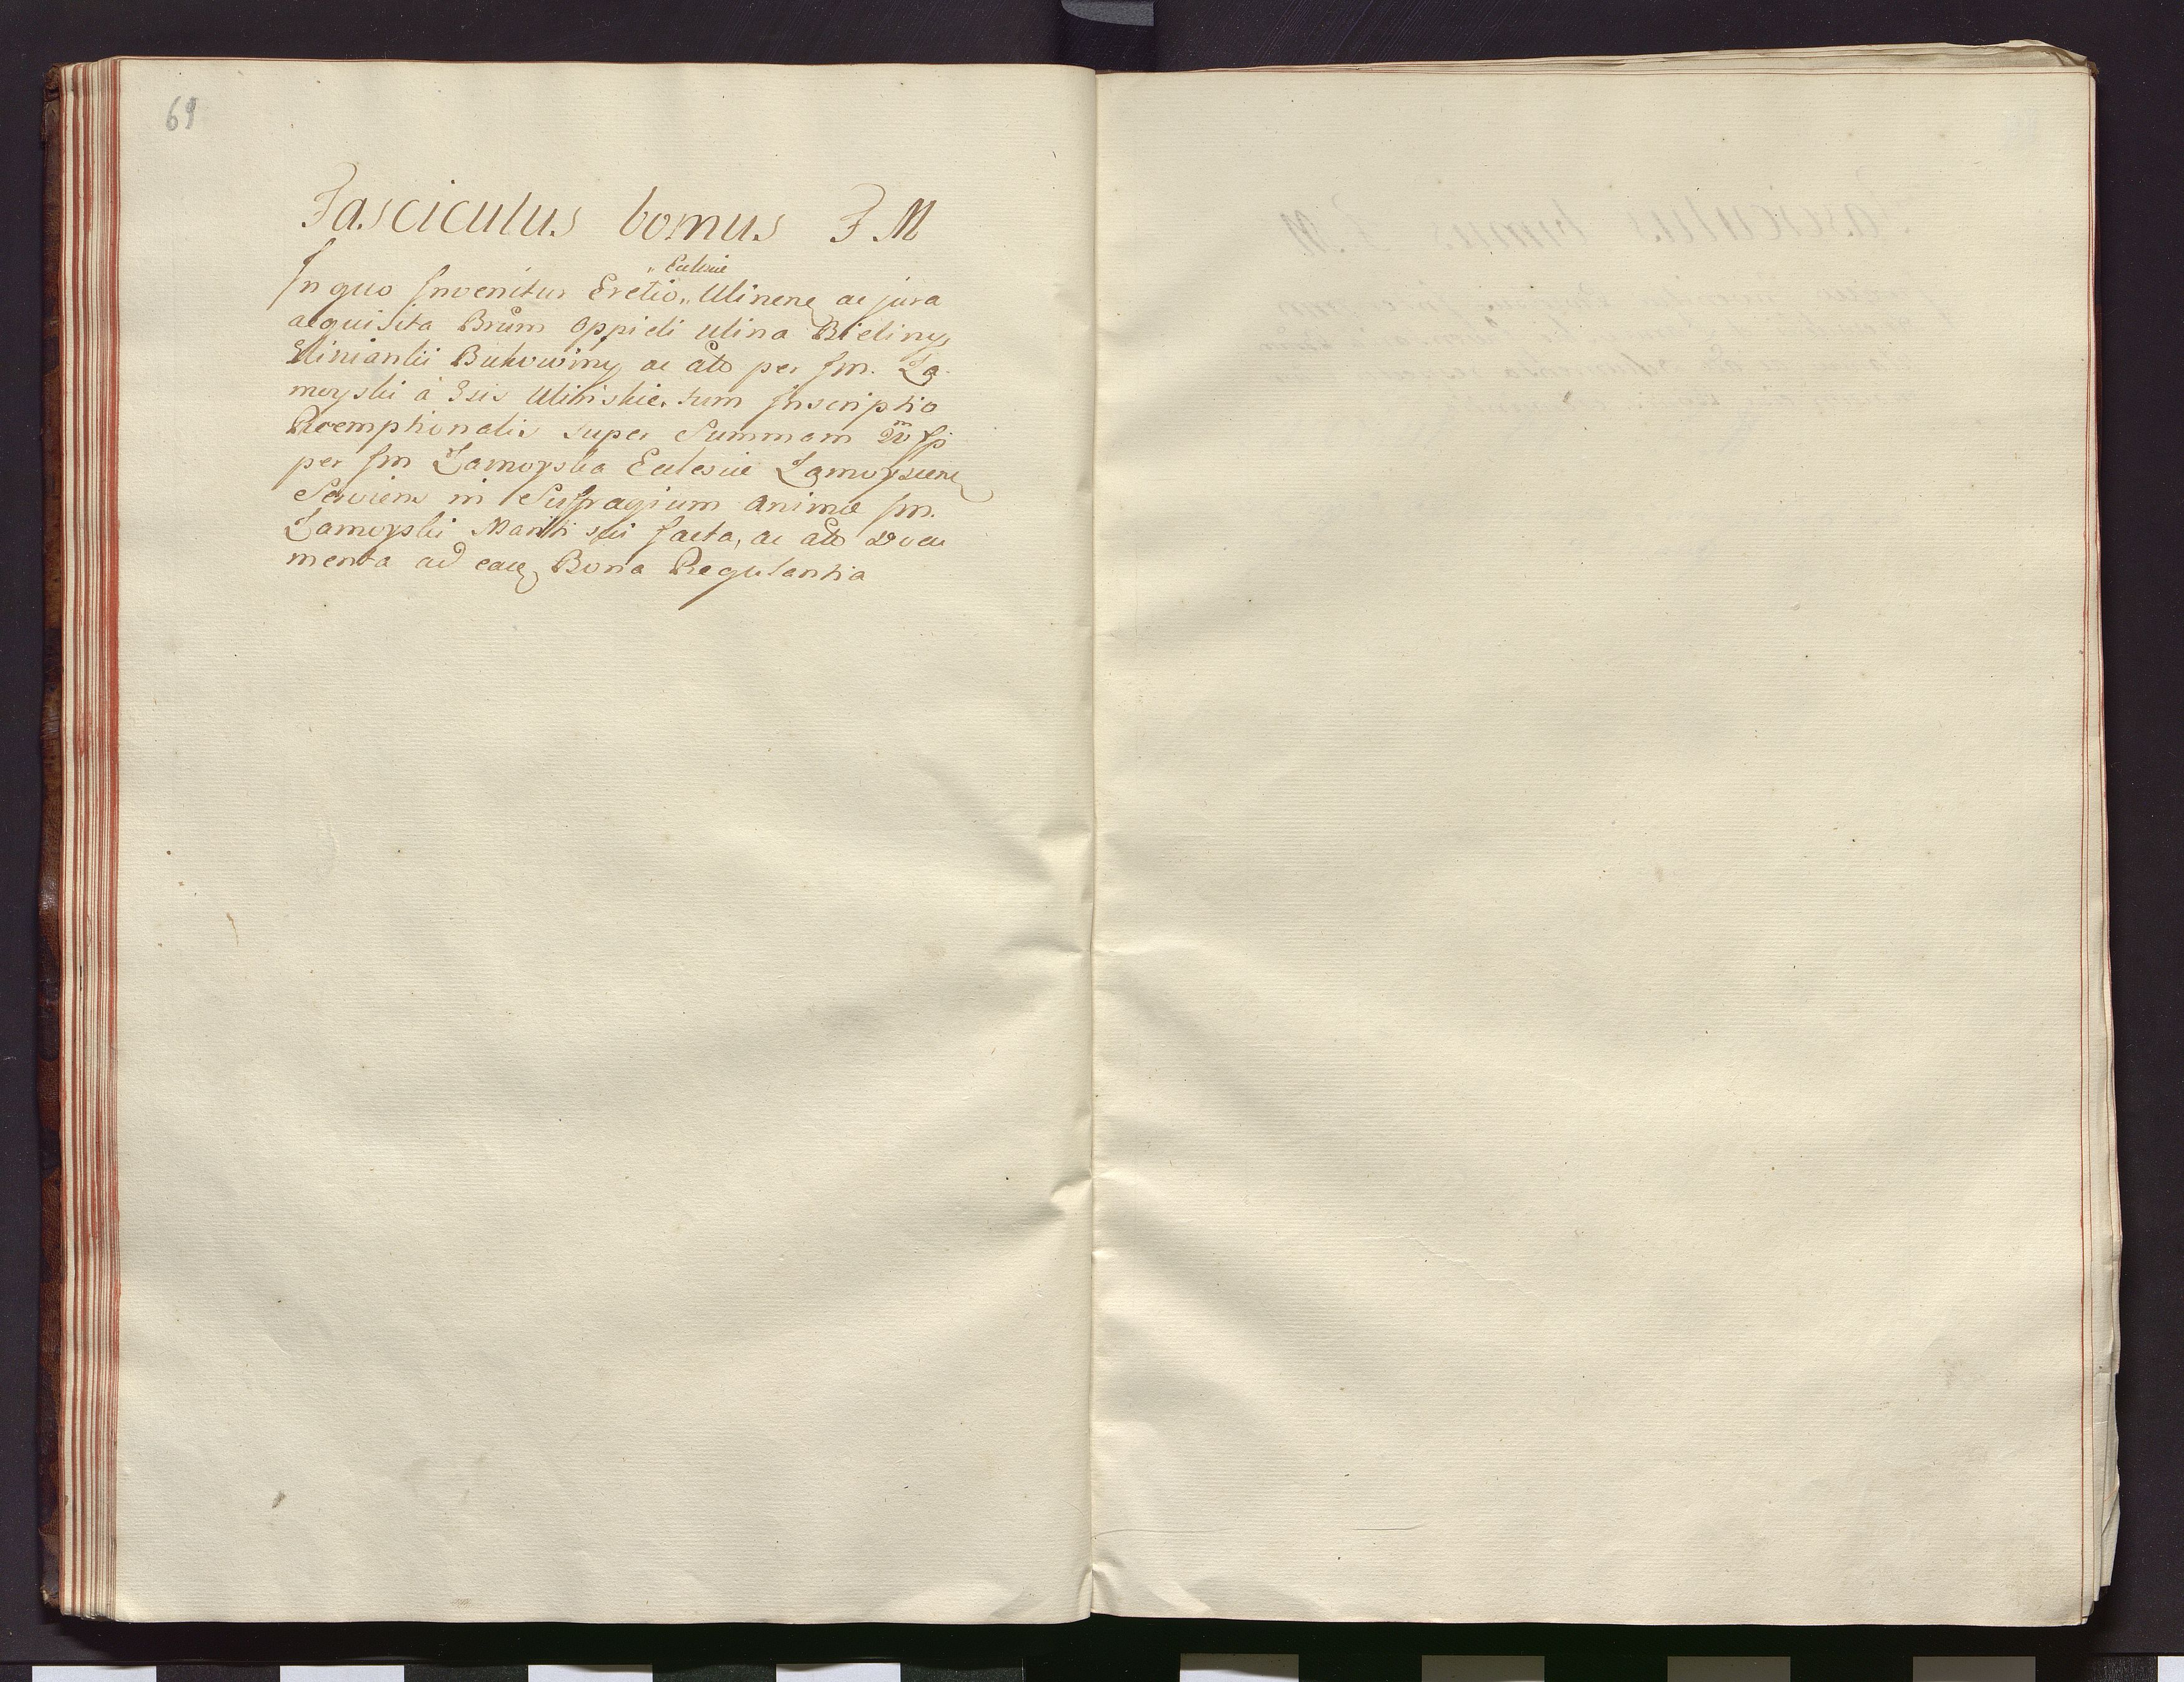 69
Fasciculus bomus F M
Ecclesiæ
In quo Invenitur Erectio Ulinens ac jura
acquisita Brum Oppidi Ulina Bieliny
Uliniankii Bukowiny ac alo per Im. Za
moyski à Ulinskie tum Inscriptio
Reemptionalis super Summam
per Im Zamoyska Ecclesiæ Zamoyscens
Serviens in Suffragium animæ Im.
Zamoyski Mariti sui facta, ac alo Docu
menta ad eaq Bona Regulantia